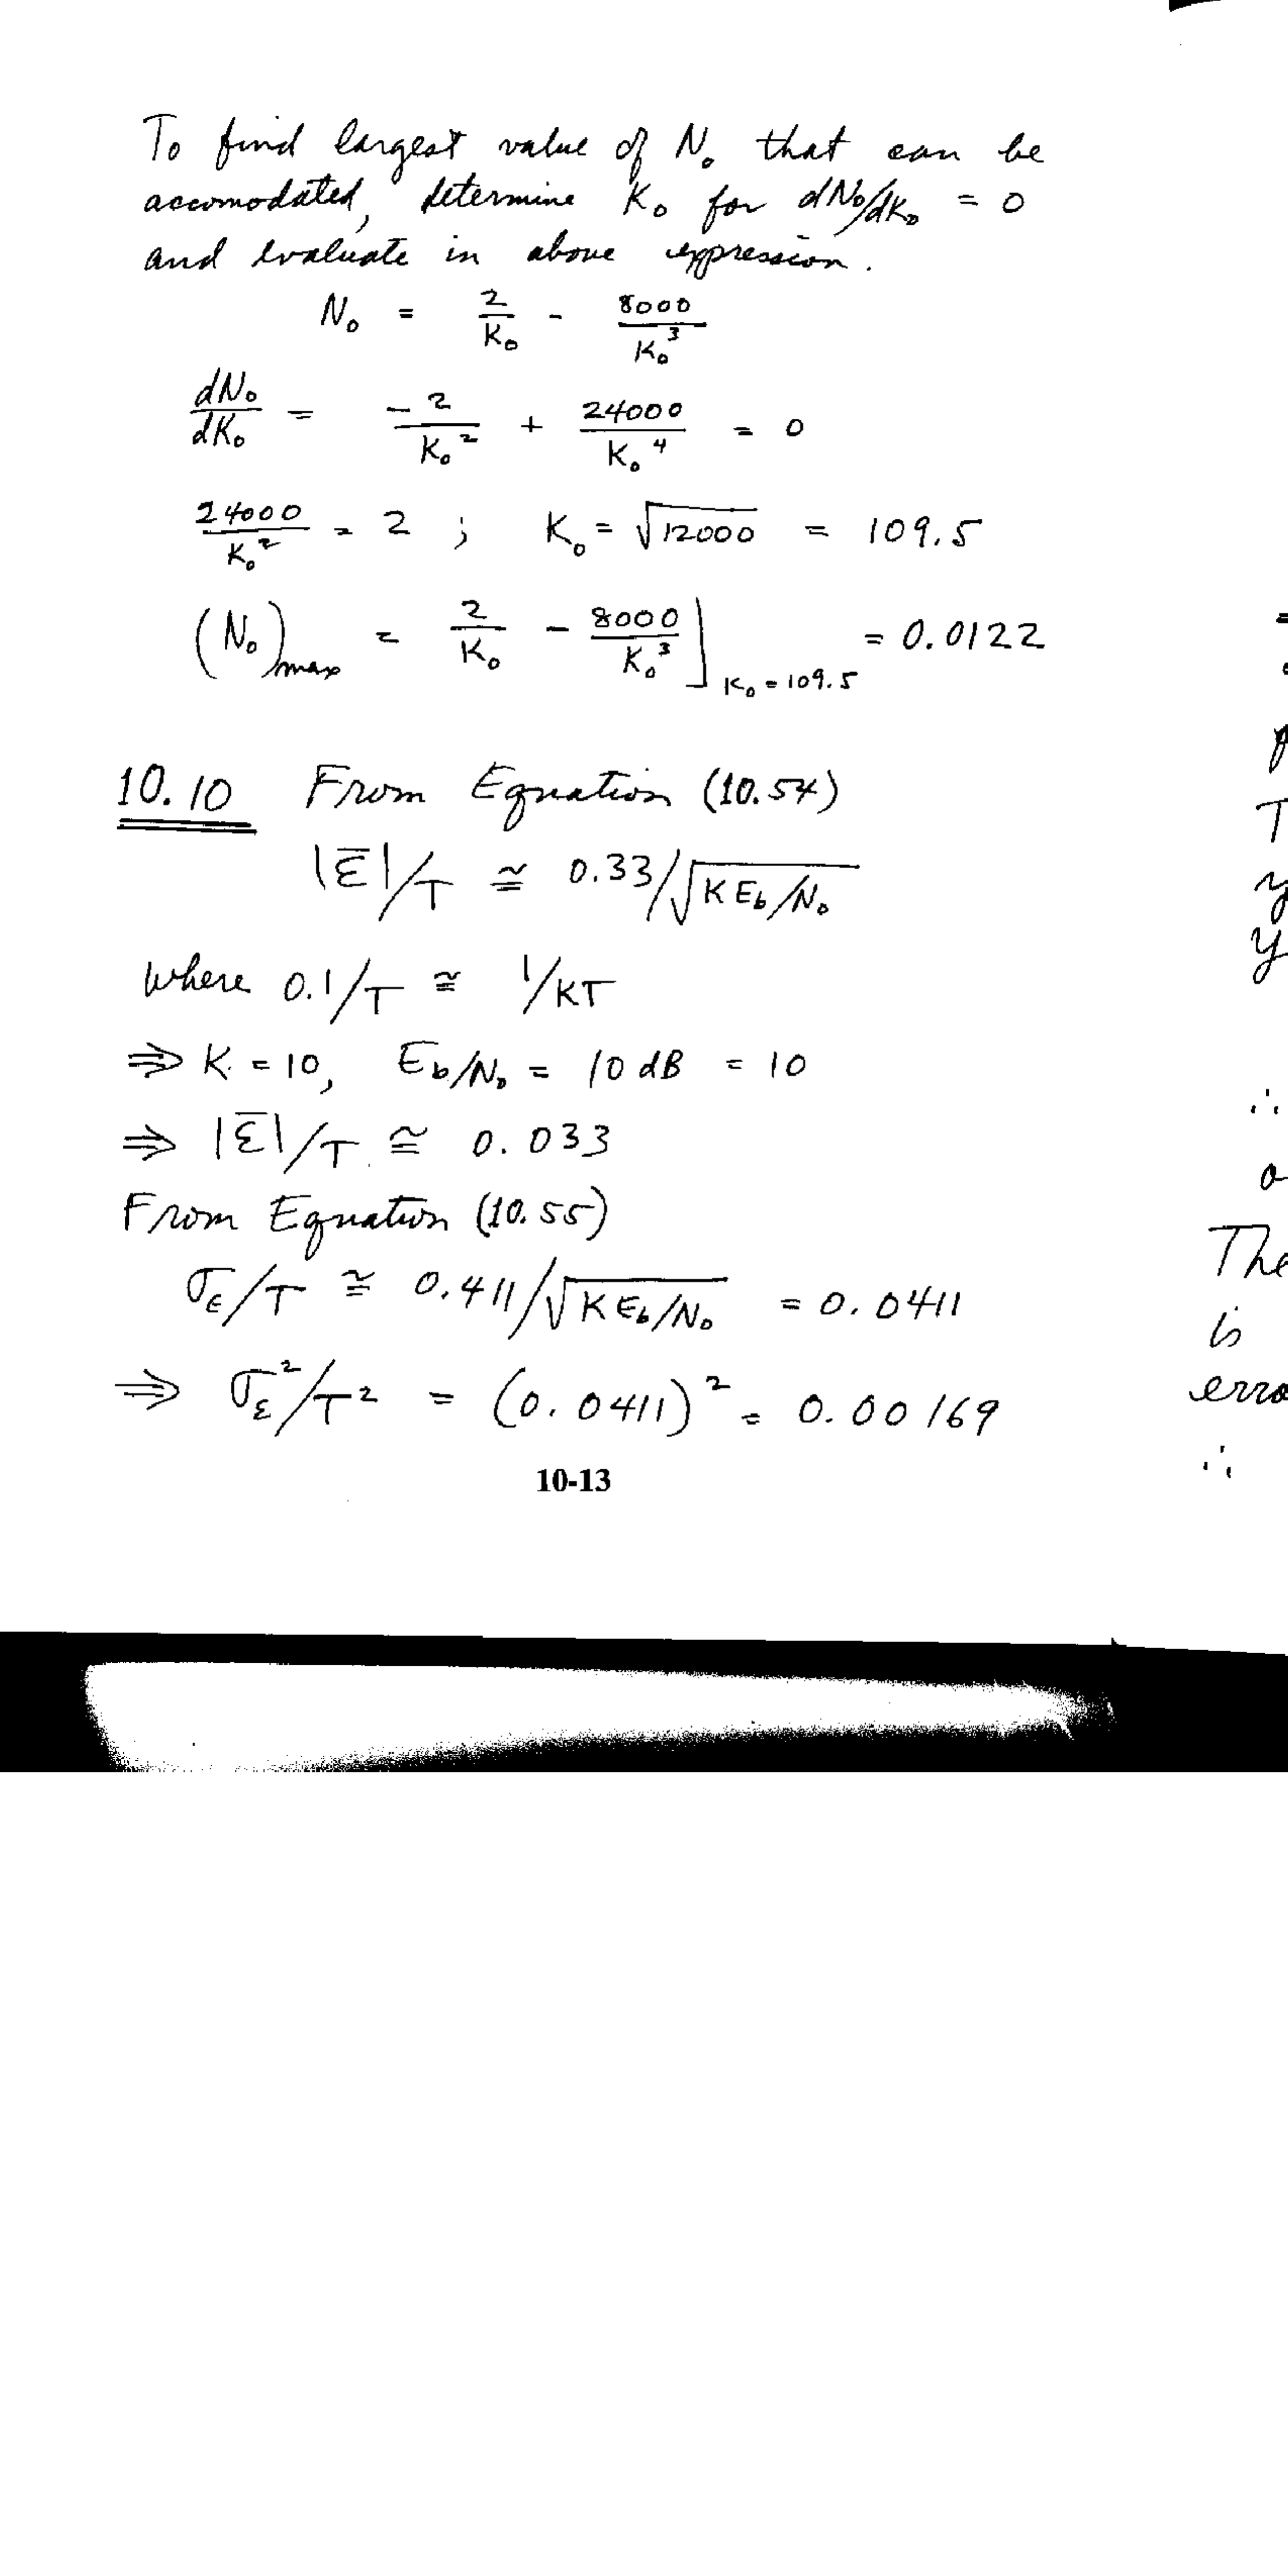 To find largest value of N₀ that can be
accomodated, determine K₀ for dN₀/dK₀ = 0
and evaluate in above expression.
N₀ = 2/K₀ - 8000/K₀³
dN₀/dK₀ = -2/K₀² + 24000/K₀⁴ = 0
24000/K₀² = 2 ; K₀ = √12000 = 109.5
(N₀)max = 2/K₀ - 8000/K₀³ ]K₀ = 109.5 = 0.0122
10.10 From Equation (10.54)
|ε̅|/T ≅ 0.33/√(K Eb/N₀)
where 0.1/T ≅ 1/KT
⇒ K = 10, Eb/N₀ = 10 dB = 10
⇒ |ε̅|/T ≅ 0.033
From Equation (10.55)
σε/T ≅ 0.411/√(K Eb/N₀) = 0.0411
⇒ σε²/T² = (0.0411)² = 0.00169
10-13
T
y
y
∴
The
is
erro
∴